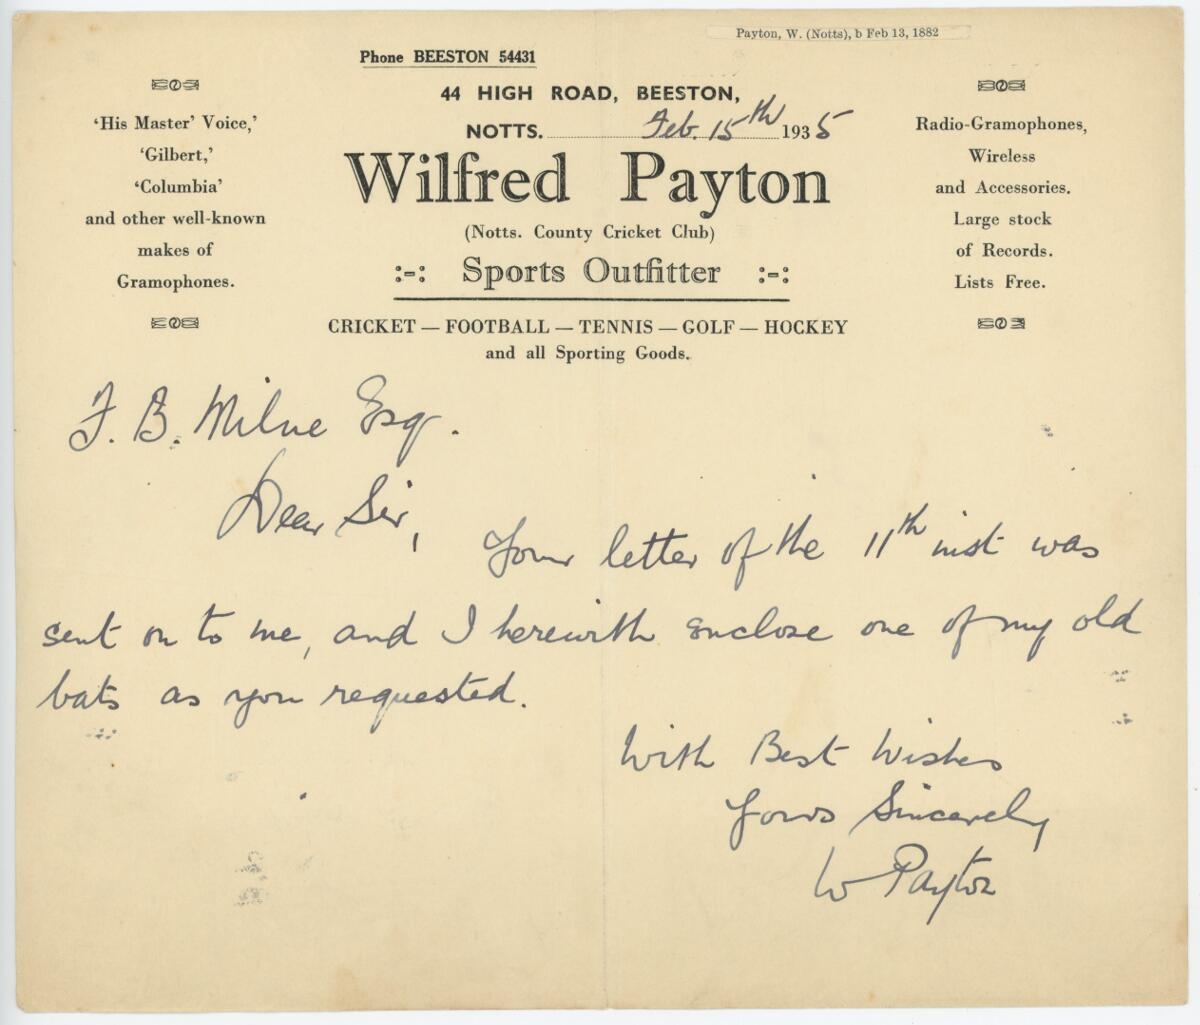 Payton, W. (Notts), b Feb 13, 1882
Phone BEESTON 54431
44 HIGH ROAD, BEESTON,
NOTTS. Feb. 15th 1935
'His Master' Voice,'
'Gilbert,'
'Columbia'
and other well-known
makes of
Gramophones.
Wilfred Payton
(Notts. County Cricket Club)
:-: Sports Outfitter :-:
CRICKET — FOOTBALL — TENNIS — GOLF — HOCKEY
and all Sporting Goods.
Radio-Gramophones,
Wireless
and Accessories.
Large stock
of Records.
Lists Free.
F. B. Milne Esq.
Dear Sir,
Your letter of the 11th inst was
sent on to me, and I herewith enclose one of my old
bats as you requested.
With Best Wishes
Yours Sincerely
W Payton